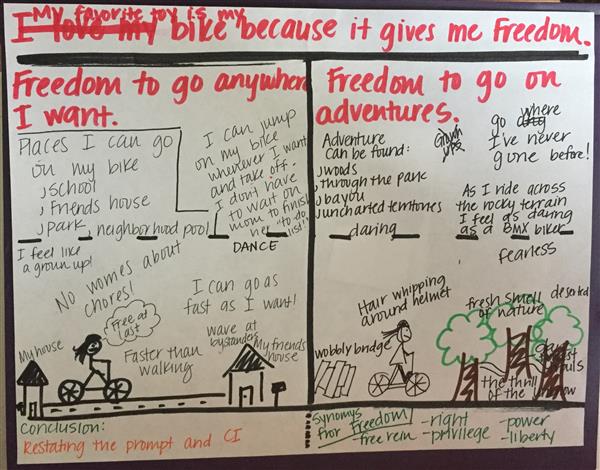 My favorite toy is my
I love my bike because it gives me Freedom.
Freedom to go anywhere
I want.
Places I can go
on my bike
, school
, Friends house
, park, neighborhood pool
I can jump
on my bike
wherever I want
and take off.
I don't have
to wait on
mom to finish
her "to do
list!"
DANCE
I feel like
a grown up!
No worries about
chores!
I can go as
fast as I want!
Free at
last
wave at
bystanders
Faster than
walking
My house
My friends
house
Freedom to go on
adventures.
Adventure
Can be found:
, woods
, through the park
, bayou
, uncharted territories
daring
Grown
ups
go where
I've never
gone before!
As I ride across
the rocky terrain
I feel as daring
as a BMX biker
fearless
Hair whipping
around helmet
fresh smell
of nature
deserted
wobbly bridge
the thrill
of the unknow
Conclusion:
Restating the prompt and CI
Synonyms
for Freedom
-free rein
-right
-privilege
-power
-liberty